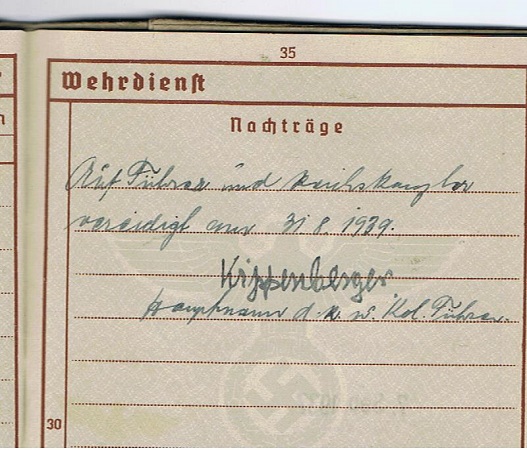 35
Wehrdienst
Nachträge
Auf Führer und Reichskanzler
vereidigt am 31.8.1939.
Kippenberger
Hauptmann d. R. u. Kol. Führer.
30